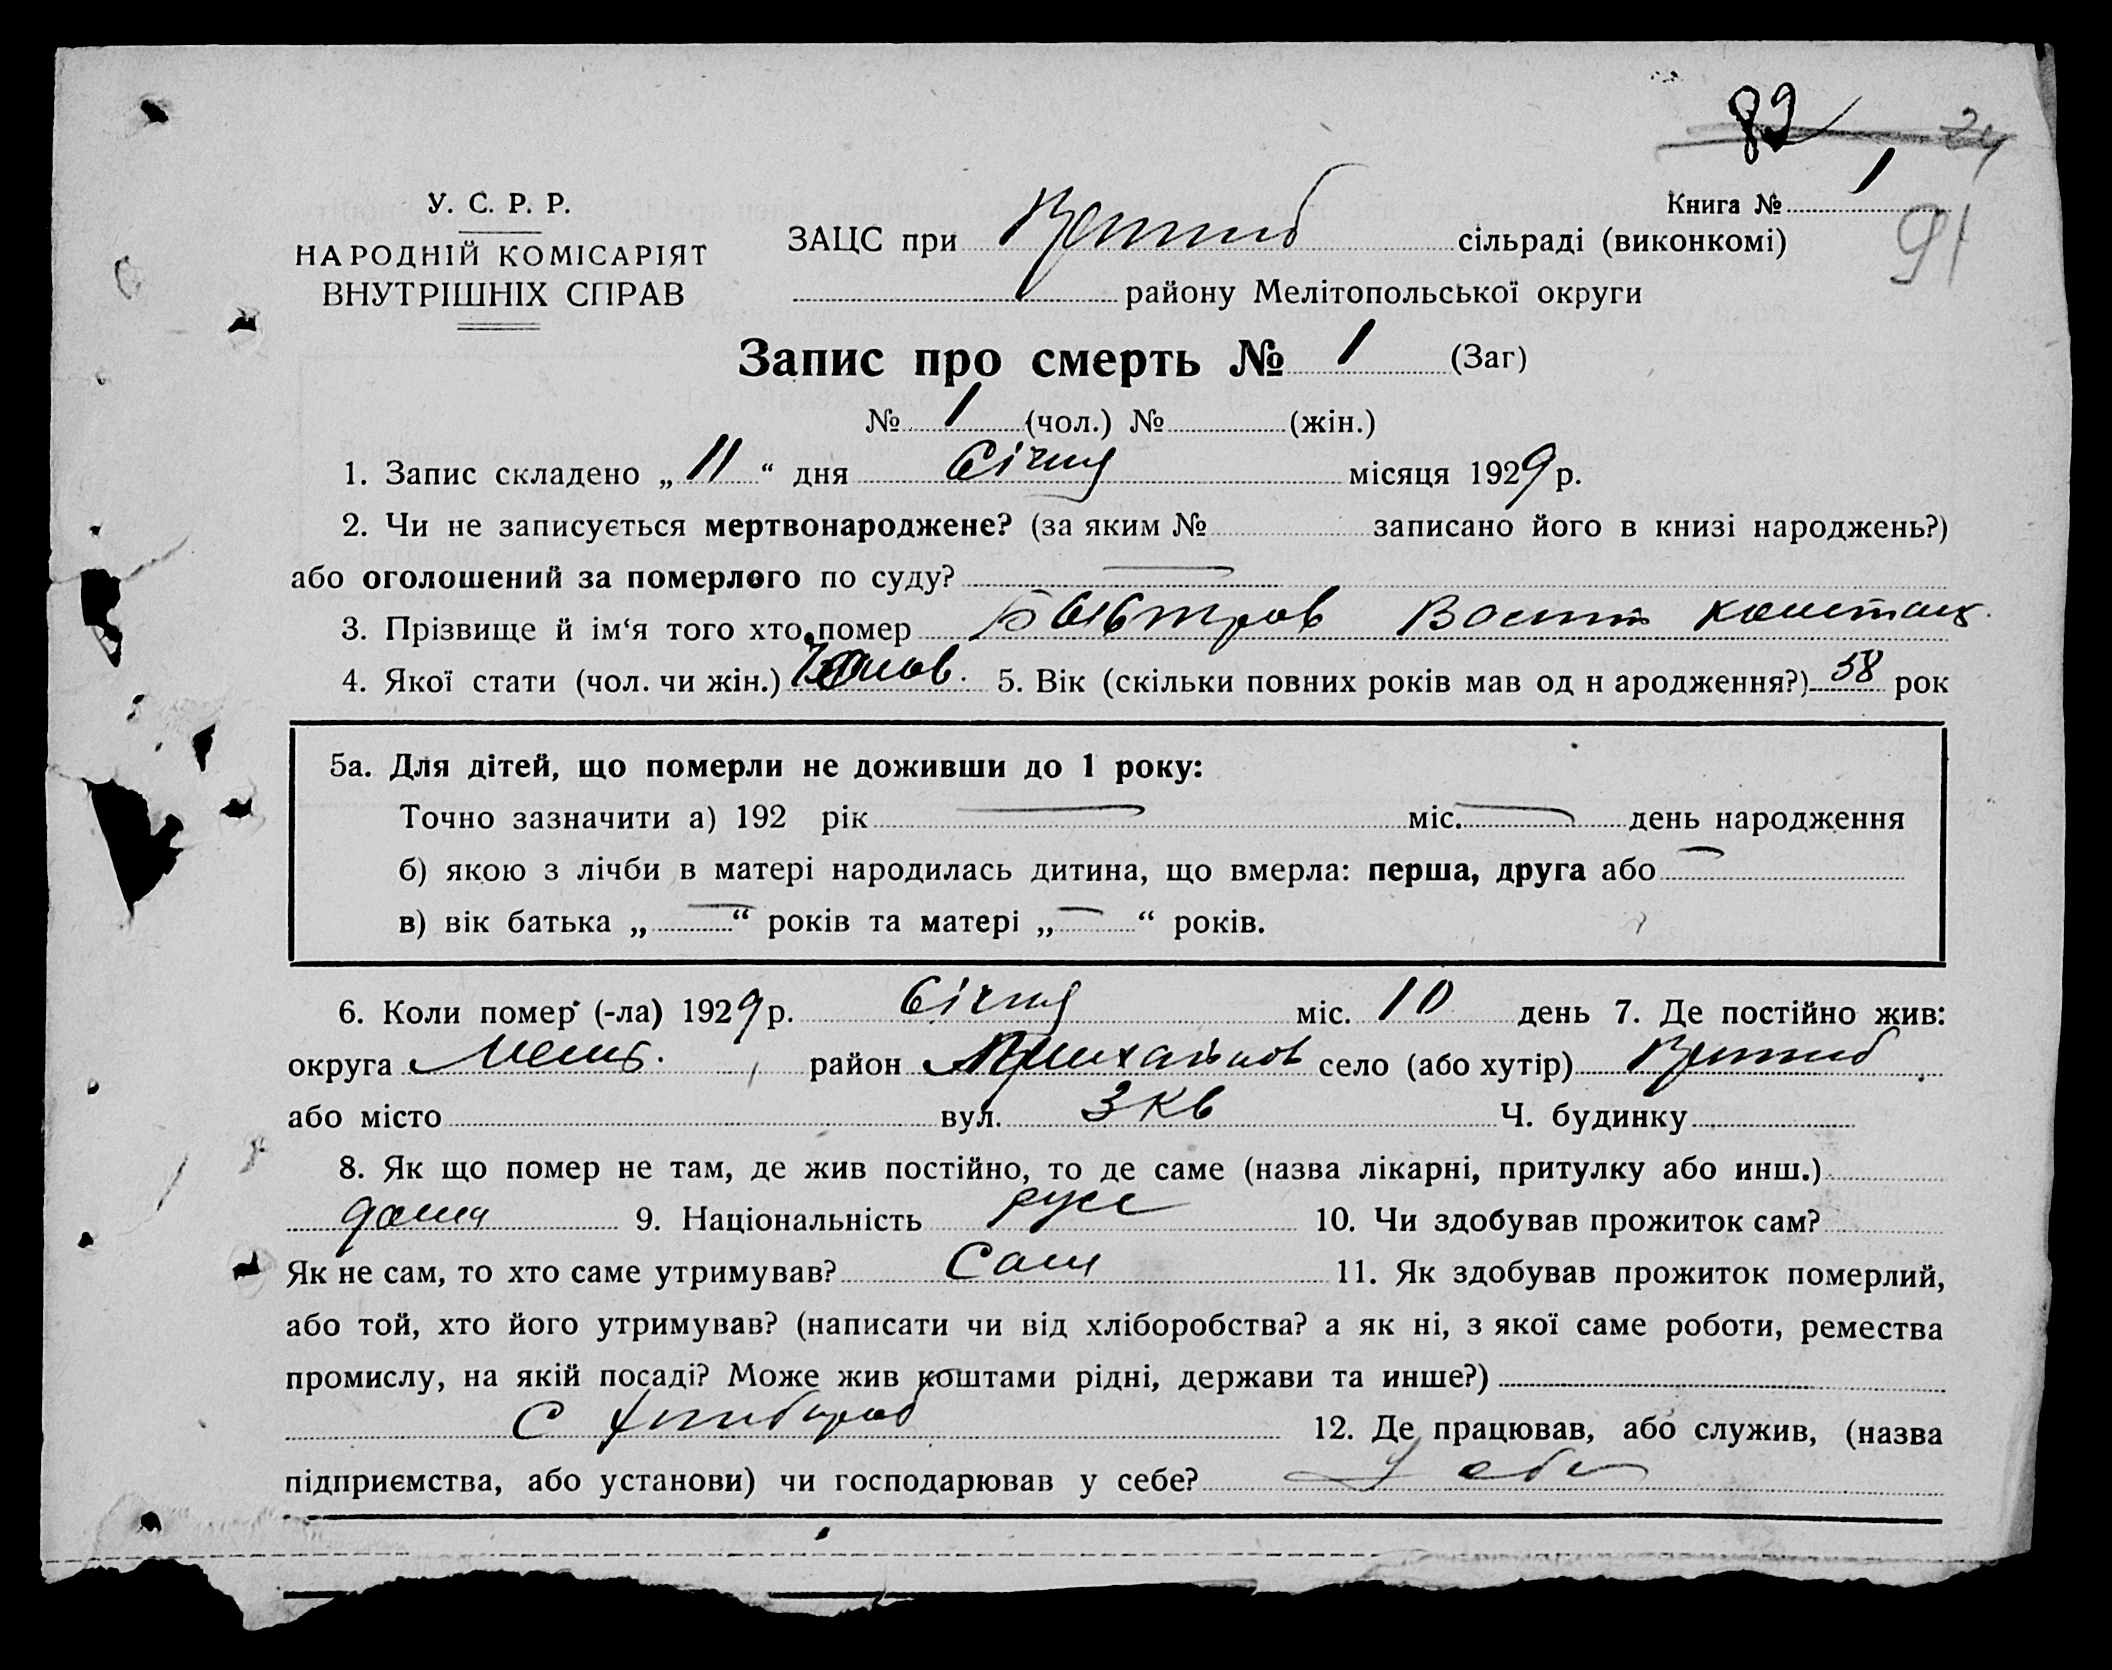 82
24
У. С. Р. Р.
НАРОДНІЙ КОМІСАРІЯТ
ВНУТРІШНІХ СПРАВ
Книга № 1
91
ЗАЦС при сільраді (виконкомі)
району Мелітопольської округи
Запис про смерть № 1 (Заг)
№ 1 (чол.) № (жін.)
1. Запис складено „ 11 “ дня Січня місяця 1929 р.
2. Чи не записується мертвонароджене? (за яким № записано його в книзі народжень?)
або оголошений за померлого по суду? —
3. Прізвище й ім‘я того хто помер
4. Якої стати (чол. чи жін.) 5. Вік (скільки повних років мав од н ародження?) 58 рок
5а. Для дітей, що померли не доживши до 1 року:
Точно зазначити а) 192 рік — міс. — день народження
б) якою з лічби в матері народилась дитина, що вмерла: перша, друга або —
в) вік батька „ — “ років та матері „ — “ років.
6. Коли помер (-ла) 1929 р. Січня міс. 10 день 7. Де постійно жив:
округа Меліт. район село (або хутір)
або місто вул. 3 кв Ч. будинку
8. Як що помер не там, де жив постійно, то де саме (назва лікарні, притулку або инш.)
дома 9. Національність русс 10. Чи здобував прожиток сам?
Як не сам, то хто саме утримував? Сам 11. Як здобував прожиток померлий,
або той, хто його утримував? (написати чи від хліборобства? а як ні, з якої саме роботи, ремества
промислу, на якій посаді? Може жив коштами рідні, держави та инше?)
С 12. Де працював, або служив, (назва
підприємства, або установи) чи господарював у себе? У себе